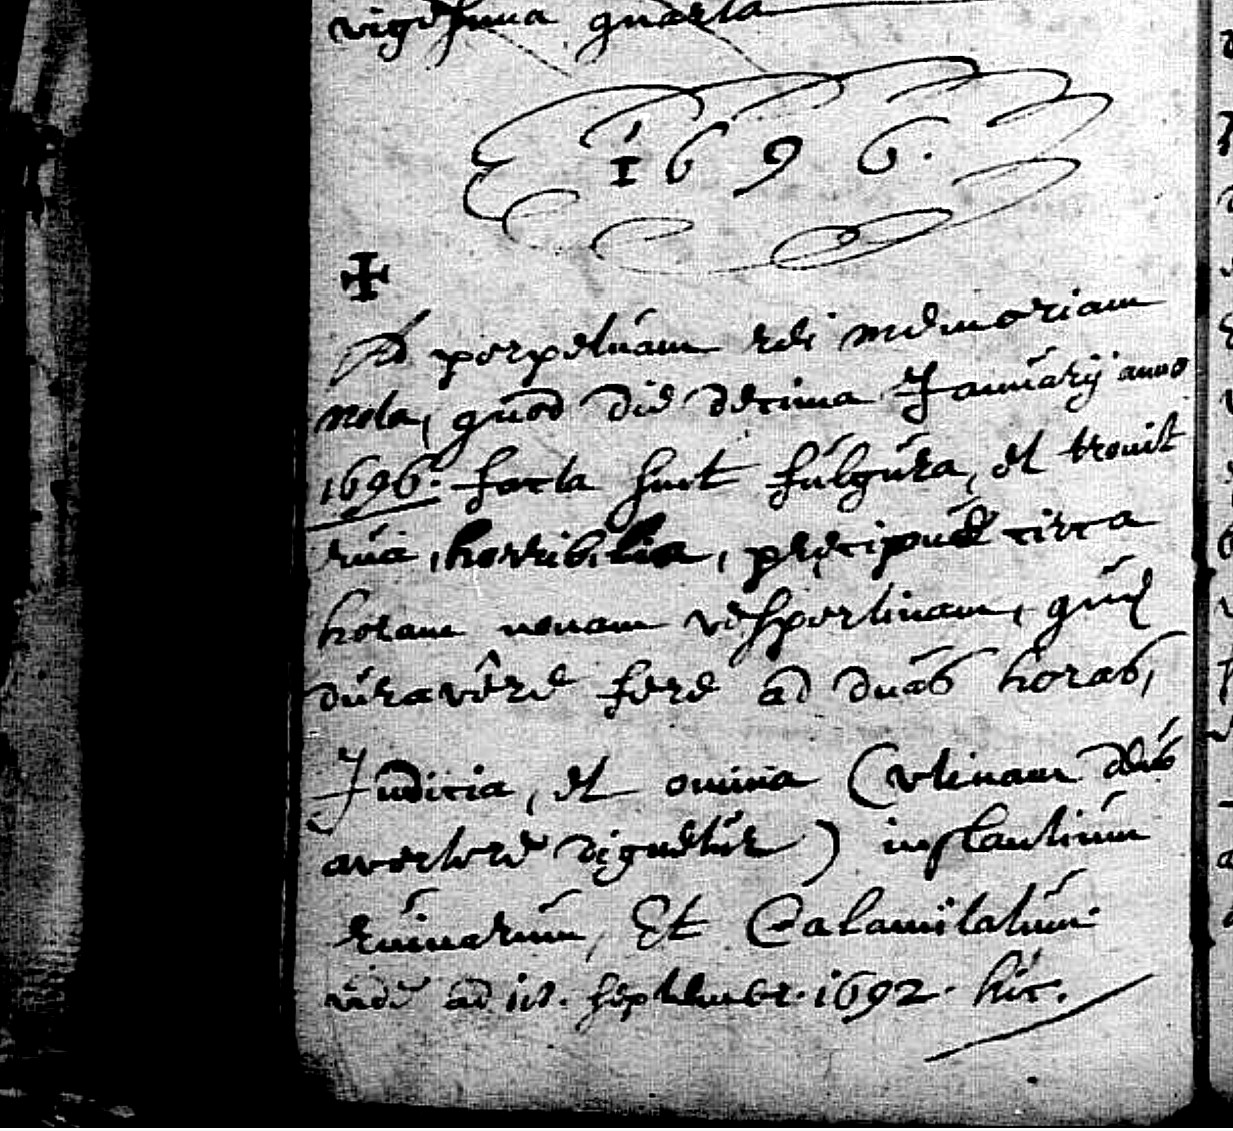 vigesima quarta
1696.
✠
Ad perpetuam rei memoriam
nota, quod die decima Januarij anno
1696. facta sint fulgura, et tonit
rua, horribilia, precipuè circa
horam nonam vespertinam, quę
duravêre ferè ad duas horas,
Judicia, et omina (utinam deus
avertere dignetur) instantium
ruinarum, Et Calamitatum
vide ad 18. septembr. 1692. hîc.